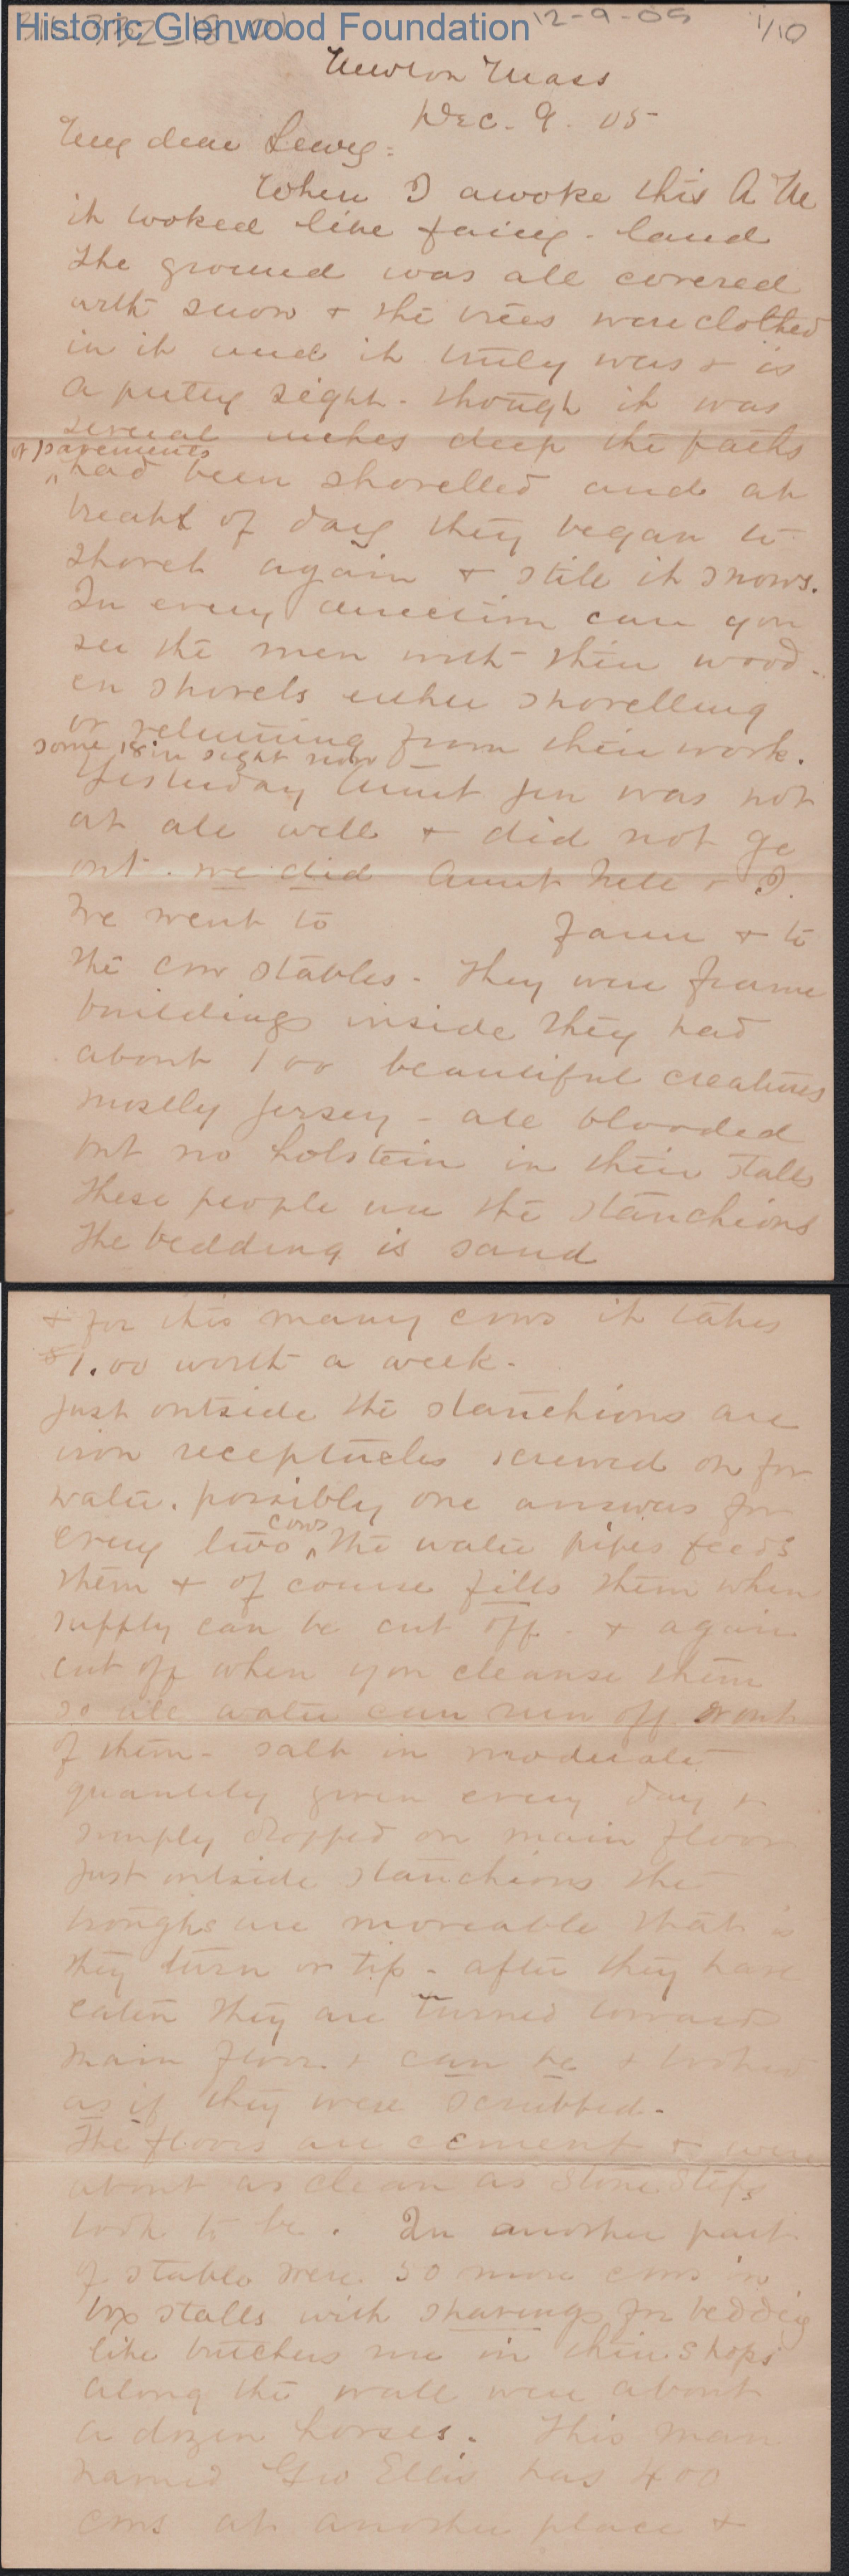 Historic Glenwood Foundation
12-9-05
1/10
Newton Mass
Dec. 9. 05
My dear Lewis:
When I awoke this A M
it looked like fairy-land
the ground was all covered
with snow & the trees were clothed
in it and it truly was & is
a pretty sight. though it was
several inches deep the paths
or pavements
had been shovelled and at
break of day they began to
shovel again & still it snows.
In every direction can you
see the men with their wood-
en shovels either shovelling
or returning from their work.
some 18 in sight now
Yesterday Aunt Jen was not
at all well & did not go
out. we did Aunt Nell & I.
We went to farm & to
the cow stables. They were frame
buildings inside they had
about 100 beautiful creatures
mostly Jersey - all blooded
but no holstein in their stalls
These people use the stanchions
The bedding is sand
& for this many cows it takes
$1.00 worth a week.
Just outside the stanchions are
iron receptacles screwed on for
water. possibly one answers for
cows
every two the water pipes feeds
them & of course fills them when
supply can be cut off. & again
cut off when you cleanse them
so all water can run off or out
of them - salt in moderate
quantity given every day &
simply dropped on main floor
just outside stanchions the
troughs are moveable that is
they turn or tip - after they have
eaten they are turned toward
main floor & can be & looked
as if they were scrubbed.
The floors are cement & were
about as clean as stone steps
look to be. In another part
of stable were 50 more cows in
box stalls with shavings for bedding
like butchers use in their shops
along the wall were about
a dozen horses. This man
named Geo Ellis has 400
cows at another place &